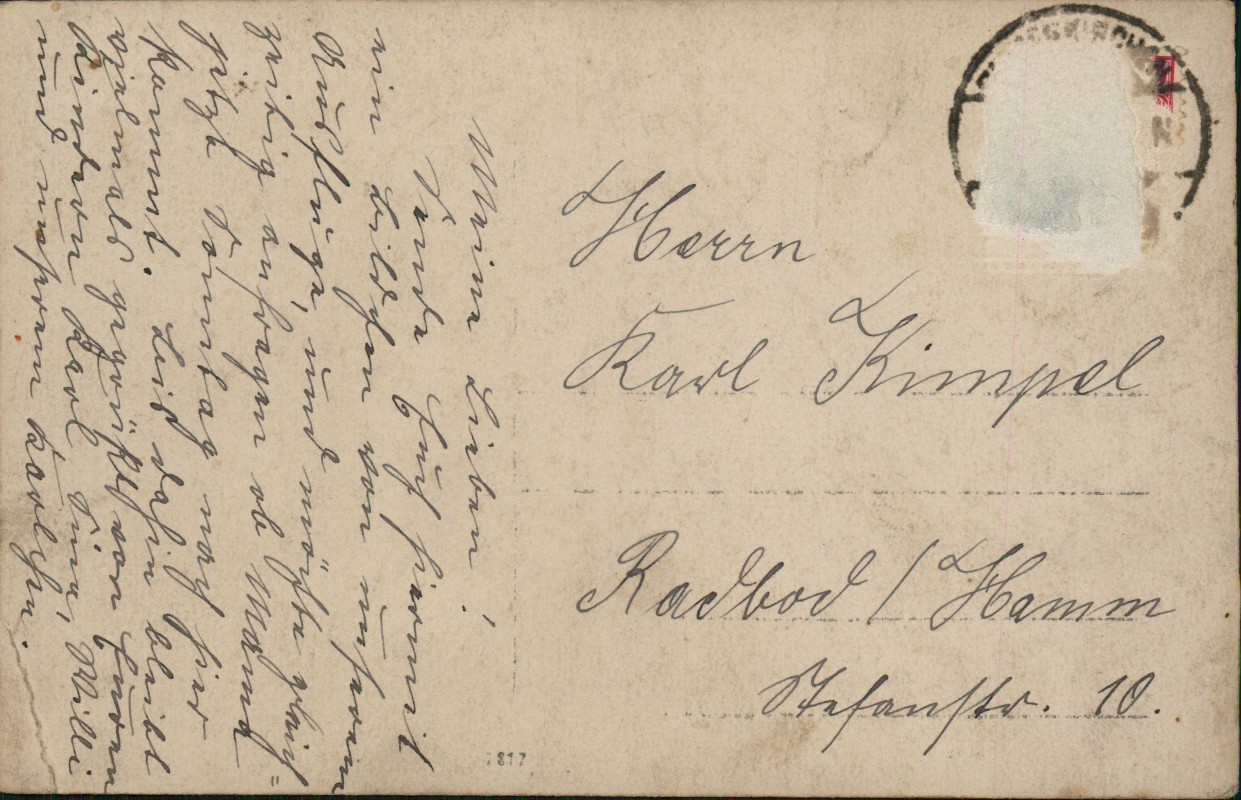 Meine Lieben!
Sende Euch hiermit
ein Bildchen von unserem
Ausfluge, und möchte gleich=
zeitig anfragen ob Mama
jetzt Sonntag nach hier
kommt. Seid dahin bleibt
vielmals gegrüßt von Euren
Kindern Karl, Sina, Willi
und unserem Karlchen.
Herrn
Karl Kimpel
Radbod / Hamm
Stefanstr. 10.
7817